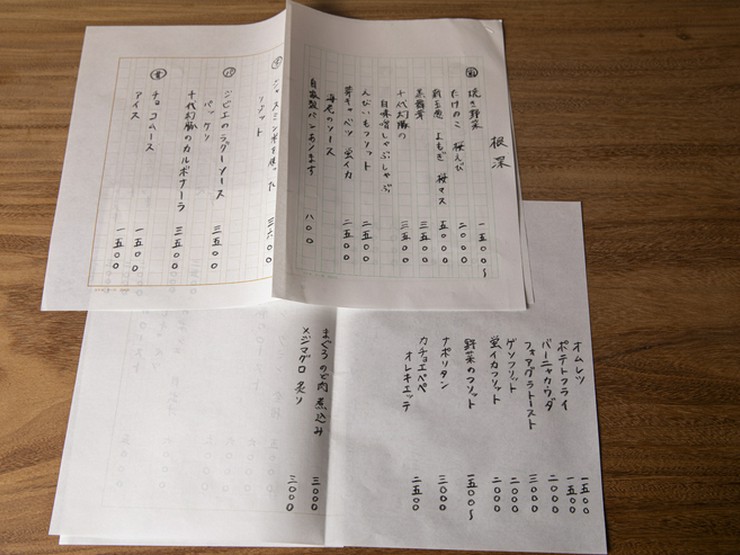 根深
焼き野菜 一五〇〇〜
たけのこ 桜えび 二〇〇〇
新玉葱 よもぎ 桜マス 五〇〇〇
黒舞茸 三五〇〇
十代幻豚の
自味噌しゃぶしゃぶ 三五〇〇
んないもフリット 二五〇〇
芽キャベツ 蛍イカ
毎花のソース 二五〇〇
自家製パンあります 八〇〇
ジャスミン米を使った
リゾット 三六〇〇
ジビエのラグーソース
パッケリ 三五〇〇
十代幻豚のカルボナーラ 三五〇〇
チョコムース 一五〇〇
アイス 一五〇〇
オムレツ 一五〇〇
ポテトフライ 一五〇〇
バーニャカウダ 二〇〇〇
フォアグラトースト 三〇〇〇
ゲソフリット 二〇〇〇
蛍イカフリット 二〇〇〇
野菜のフリット 一五〇〇〜
ナポリタン 三〇〇〇
カチョエペペ
オレキエッテ 二五〇〇
まぐろのど肉 煮込み 三〇〇〇
メジマグロ 炙り 三〇〇〇